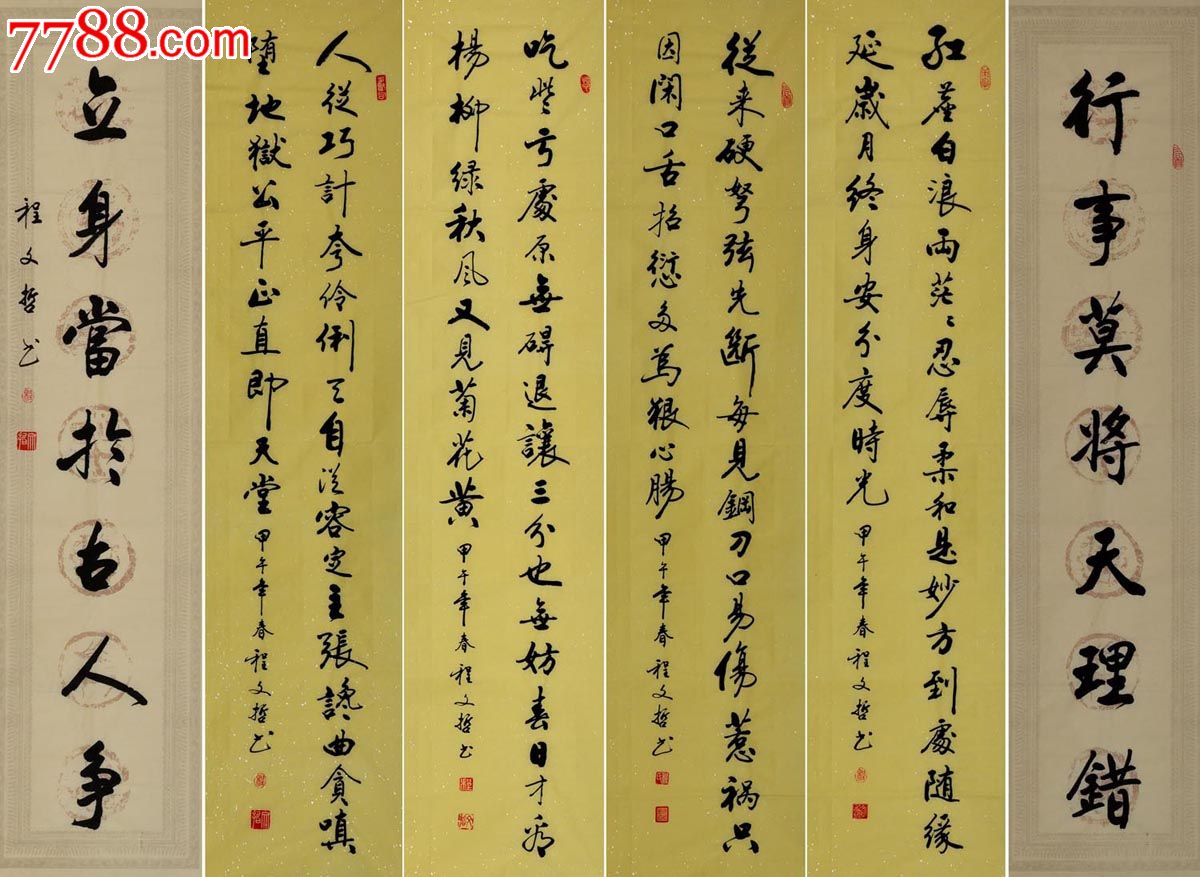 7788.com
行事莫将天理錯
红塵白浪兩茫茫忍辱柔和是妙方到處随缘
延歲月终身安分度時光 甲午年春程文哲书
從来硬弩弦先断每見鋼刀口易傷惹祸只
因闲口舌招愆多為狠心腸 甲午年春程文哲书
吃些亏處原無碍退讓三分也無妨春日才看
楊柳绿秋風又見菊花黄 甲午年春程文哲书
人從巧計夸伶俐天自從容定主張讒曲貪嗔
堕地獄公平正直即天堂 甲午年春程文哲书
立身當於古人争
程文哲书